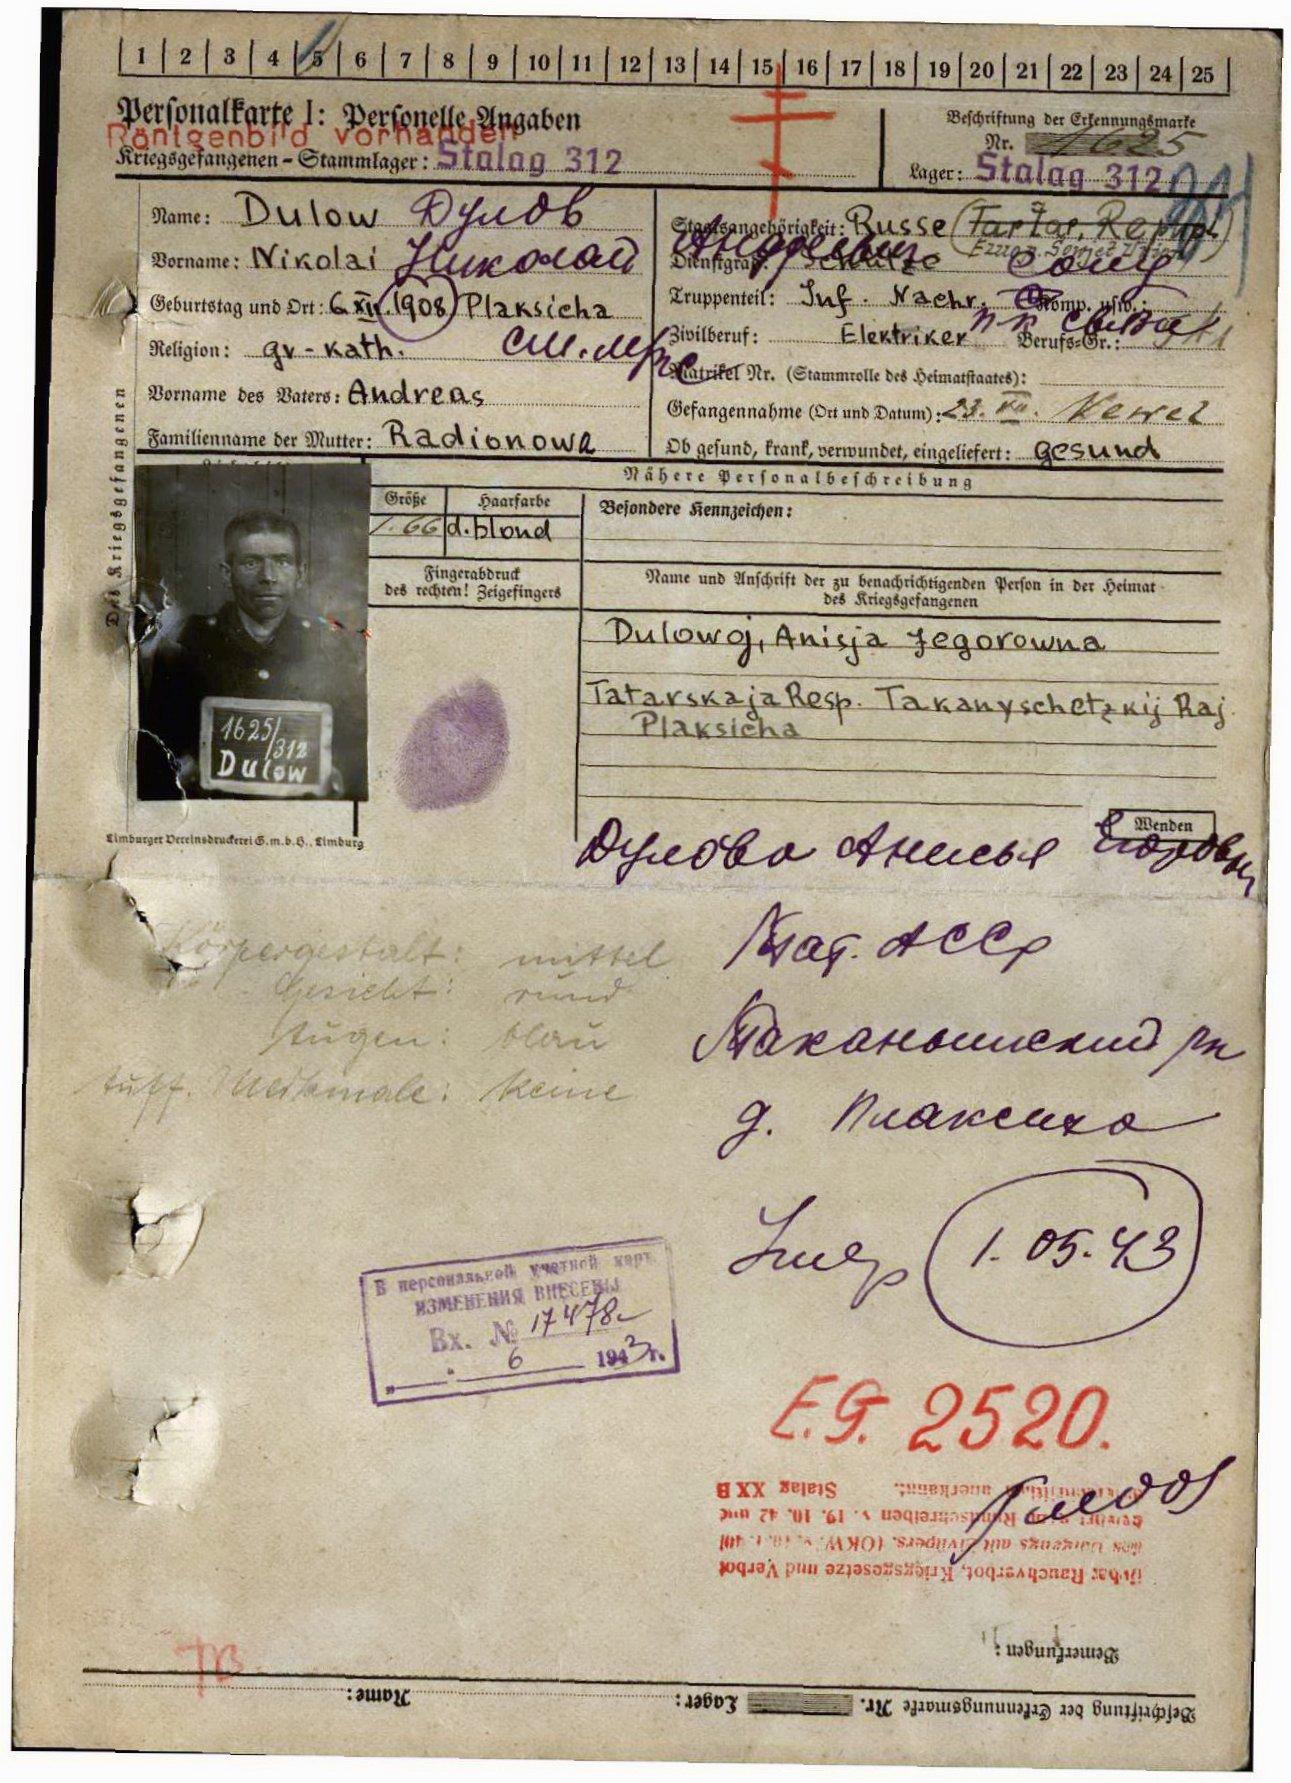 1 2 3 4 5 6 7 8 9 10 11 12 13 14 15 16 17 18 19 20 21 22 23 24 25
Personalkarte I: Personelle Angaben
Röntgenbild vorhanden
Kriegsgefangenen-Stammlager: Stalag 312
Beschriftung der Erkennungsmarke
Nr. 1625
Lager: Stalag 312
Name: Dulow Дулов
Vorname: Nikolai Николай Андреевич
Geburtstag und Ort: 6.XII.1908 Plaksicha
Religion: gr-kath.
Vorname des Vaters: Andreas
Familienname der Mutter: Radionowa
Staatsangehörigkeit: Russe (Tartar. Republ.)
Dienstgrad: Schütze
Truppenteil: Inf. Nachr. Komp. usw.:
Zivilberuf: Elektriker Berufs-Gr.:
Matrikel Nr. (Stammrolle des Heimatstaates):
Gefangennahme (Ort und Datum): 23. VII. Kewel
Ob gesund, krank, verwundet, eingeliefert: gesund
Nähere Personalbeschreibung
Des Kriegsgefangenen
Größe Haarfarbe
1.66 d.blond
Besondere Kennzeichen:
Fingerabdruck
des rechten! Zeigefingers
Name und Anschrift der zu benachrichtigenden Person in der Heimat
des Kriegsgefangenen
Dulowoj, Anisja Jegorowna
Tatarskaja Resp. Takanyschetzkij Raj.
Plaksicha
1625/312
Dulow
Limburger Vereinsdruckerei G.m.b.H., Limburg
Wenden
Дулова Анисья
Тат. АССР
Таканышский рн
д. Плаксиха
Körpergestalt: mittel
Gesicht: rund
Augen: blau
Auff. Merkmale: keine
Умер 1.05.43
В персональной учетной карт.
ИЗМЕНЕНИЯ ВНЕСЕНЫ
Вх. № 17478
6 1943г.
E.G. 2520.
über Rauchverbot, Kriegsgesetze und Verbot
des Umgangs mit Zivilpers. (OKW.
Rundschreiben v. 19. 10. 42 und
anerkannt. Stalag XX B
Bemerkungen:
Beschriftung der Erkennungsmarke Nr. Lager: Name: